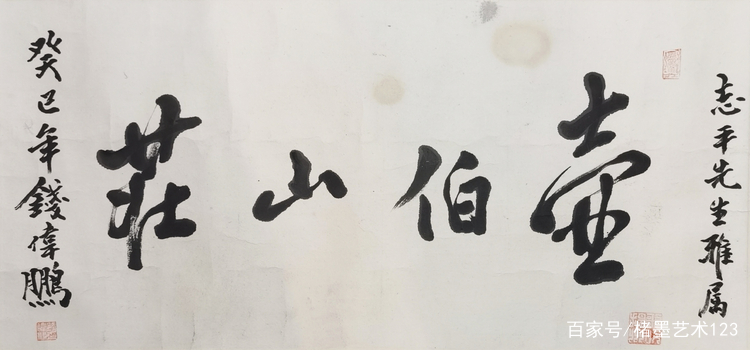 志平先生雅属
壶伯山莊
癸巳年錢偉鵬
百家号/楮墨艺术123